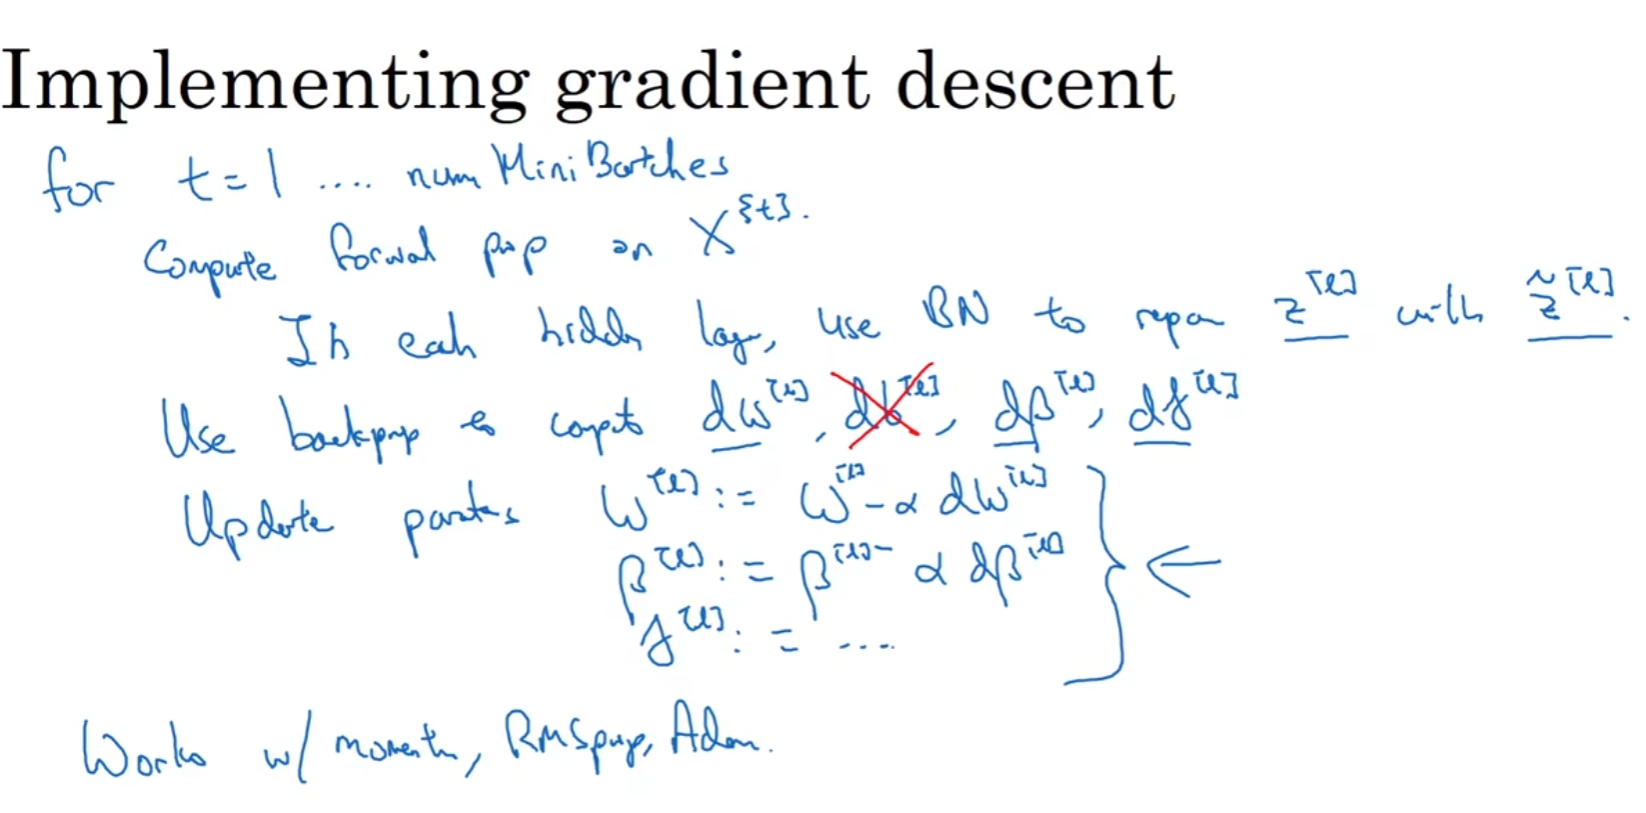 Implementing gradient descent
for t = 1 .... num MiniBatches
Compute forward prop on X^{t}.
In each hidden layer, use BN to repar z^[l] with z̃^[l].
Use backprop to compute dw^[l], db^[l], dβ^[l], dγ^[l]
Update parameters w^[l] := w^[l] - α dw^[l]
β^[l] := β^[l] - α dβ^[l]
γ^[l] := ....
Works w/ momentum, RMSprop, Adam.